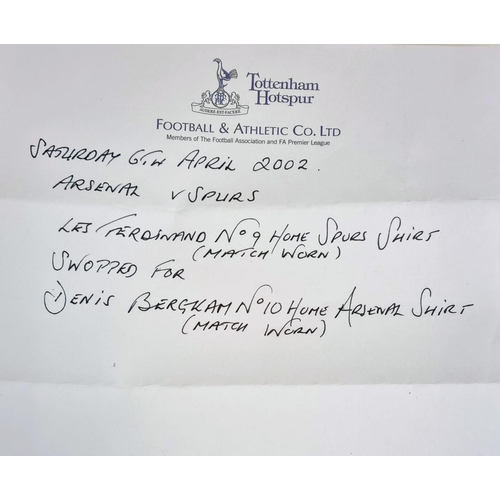 Tottenham
Hotspur
AUDERE EST FACERE
FOOTBALL & ATHLETIC CO. LTD
Members of The Football Association and FA Premier League
SATURDAY 6TH APRIL 2002.
ARSENAL V SPURS
LES FERDINAND No 9 HOME SPURS SHIRT
(MATCH WORN)
SWOPPED FOR
DENIS BERGKAM No 10 HOME ARSENAL SHIRT
(MATCH WORN)